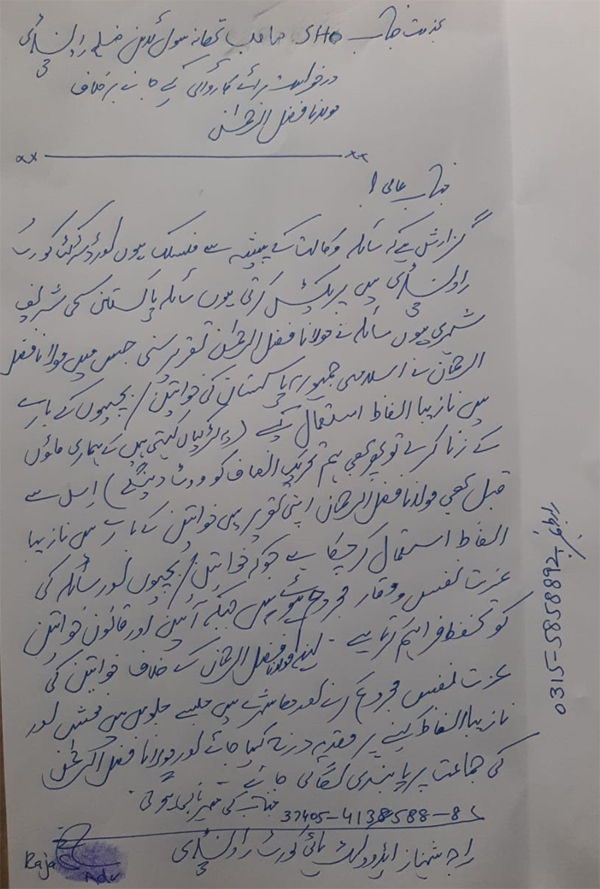 بخدمت جناب SHO صاحب تھانہ سول لائن ضلع راولپنڈی
درخواست برائے کاروائی کیے جانے برخلاف
مولانا فضل الرحمٰن
جناب عالی!
گزارش ہے کہ سائلہ وکالت کے پیشہ سے منسلک ہوں اور ڈسٹرکٹ کورٹ
راولپنڈی میں پریکٹس کرتی ہوں سائلہ پاکستان کی شریف
شہری ہوں سائلہ نے مولانا فضل الرحمٰن تقریر سنی جس میں مولانا فضل
الرحمٰن نے اسلامی جمہوریہ پاکستان کی خواتین / بچیوں کے بارے
میں نازیبا الفاظ استعمال کیے (یہ لڑکیاں کہتی ہیں کے ہماری ماؤں
کے زنا کرلے تو پھر بھی ہم تحریک انصاف کو ووٹ دینگے) اس سے
قبل بھی مولانا فضل الرحمان اپنی تقریر میں خواتین کے بارے میں نازیبا
الفاظ استعمال کر چکا ہے جو کہ خواتین / بچیوں اور سائلہ کی
عزت نفس و وقار مجروح ہوئے ہیں جبکہ آئین اور قانون خواتین
کو تحفظ فراہم کرتا ہے۔ لہذا مولانا فضل الرحمان کے خلاف خواتین کی
عزت نفس مجروح کرنے اور معاشرے میں جلسے جلوس میں فحش اور
نازیبا الفاظ کہنے پر مقدمہ درج کیا جائے اور مولانا فضل الرحمٰن
کی جماعت پر پابندی لگائی جائے۔
جناب کی مہربانی ہوگی
37405-4138588-8
راجہ شہناز ایڈووکیٹ ہائی کورٹ راولپنڈی
Raja
Adv
رابطہ نمبر 0315-5858892